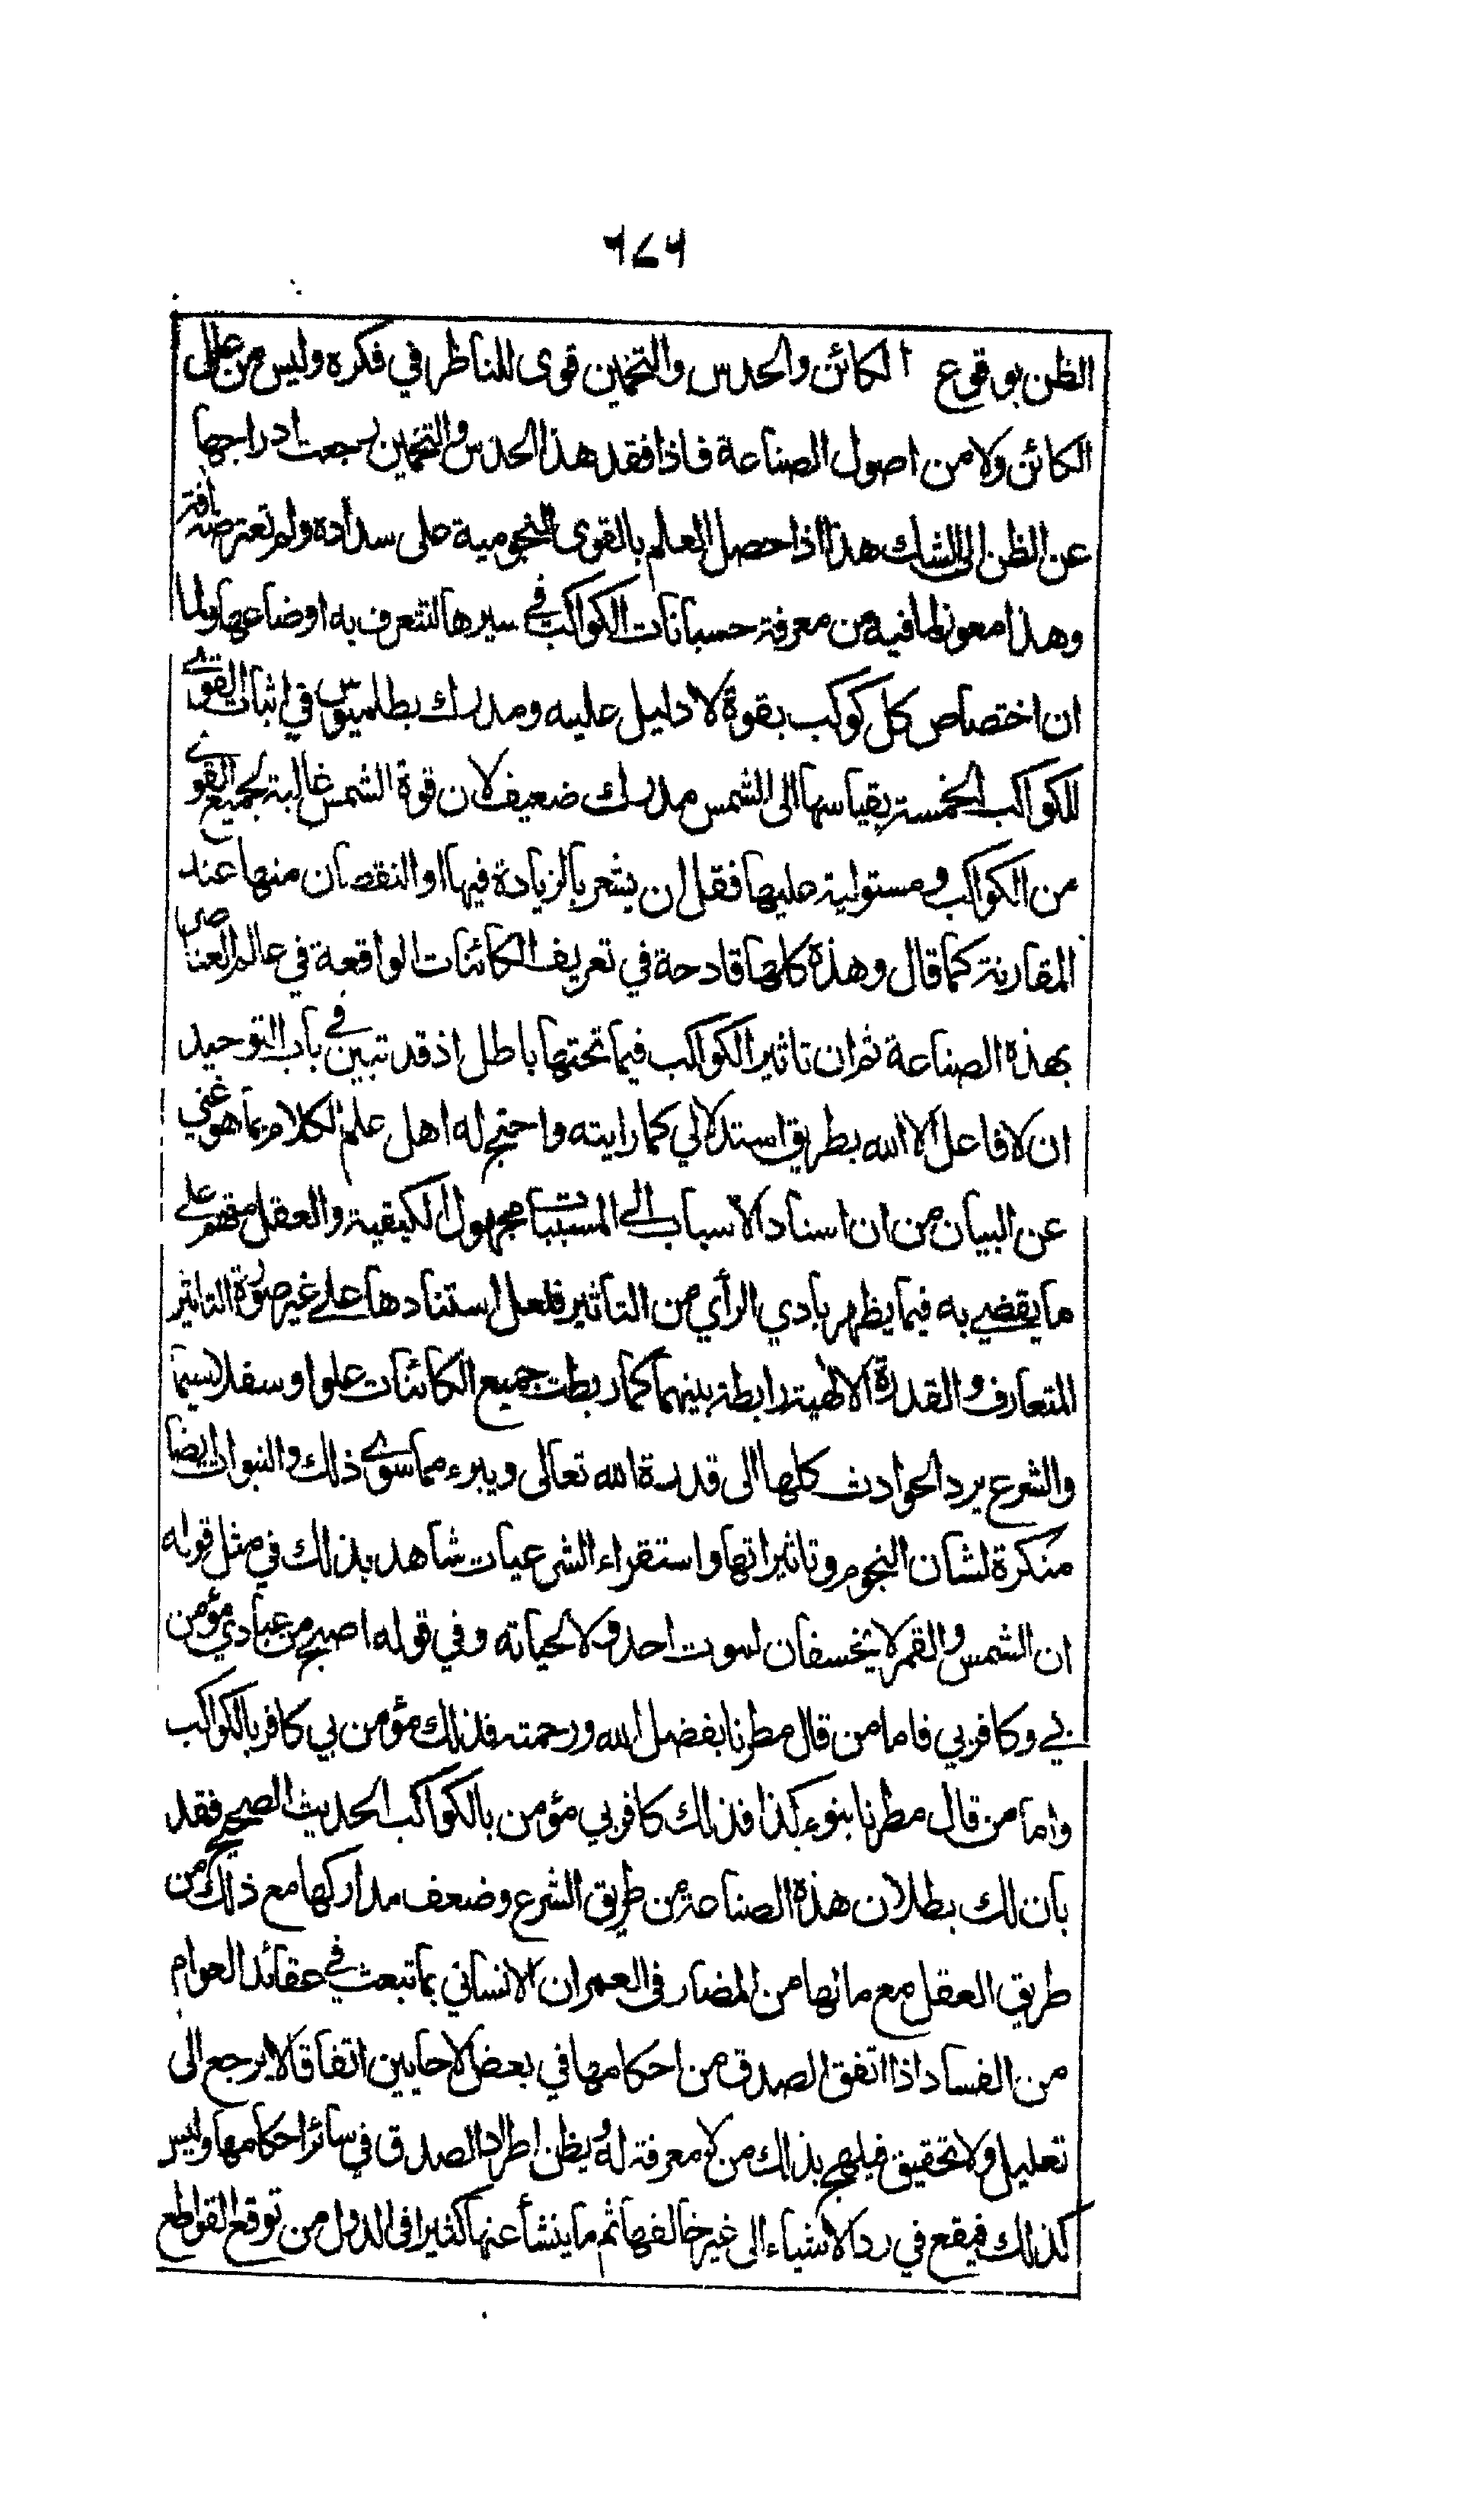 ٦٤٦
الظن بوقوع الكائن والحدس والتخمين قوى للناظر في فكره وليس من علل
الكائن ولا من اصول الصناعة فاذا فقد هذا الحدس والتخمين رجعت ادراجها
عن الظن الى الشك هذا اذا حصل العلم بالقوى النجومية على سداده ولم تعترضه افة
وهذا معوز لما فيه من معرفة حسبانات الكواكب في سيرها لتتعرف به اوضاعها ولما
ان اختصاص كل كوكب بقوة لا دليل عليه ومدرك بطلميوس في اثبات القوى
للكواكب الخمسة بقياسها الى الشمس مدرك ضعيف لان قوة الشمس غالبة لجميع القوى
من الكواكب ومستولية عليها فقل ان يشعر بالزيادة فيها او النقصان منها عند
المقارنة كما قال وهذه كلها قادحة في تعريف الكائنات الواقعة في عالم العناصر
بهذه الصناعة ثم ان تاثير الكواكب فيما تحتها باطل اذ قد تبين في باب التوحيد
ان لا فاعل الا الله بطريق استدلالي كما رايته واحتج له اهل علم الكلام بما هو غني
عن البيان من ان اسناد الاسباب الى المسببات مجهول الكيفية والعقل متهم على
ما يقضي به فيما يظهر بادي الرأي من التاثير فلعل استنادها على غير صورة التاثير
المتعارف والقدرة الالهية رابطة بينهما كما ربطت جميع الكائنات علوا وسفلا سيما
والشرع يرد الحوادث كلها الى قدرة الله تعالى ويبرء مما سوى ذلك والنبوات ايضا
منكرة لشان النجوم وتاثيراتها واستقراء الشرعيات شاهد بذلك في مثل قوله
ان الشمس والقمر لا يخسفان لموت احد ولا لحياته وفي قوله اصبح من عبادي مؤمن
بي وكافر بي فاما من قال مطرنا بفضل الله ورحمته فذلك مؤمن بي كافر بالكواكب
واما من قال مطرنا بنوء كذا فذلك كافر بي مؤمن بالكواكب الحديث الصحيح فقد
بان لك بطلان هذه الصناعة من طريق الشرع وضعف مداركها مع ذلك من
طريق العقل مع ما لها من المضار في العمران الانساني بما تبعث في عقائد العوام
من الفساد اذا اتفق الصدق من احكامها في بعض الاحايين اتفاقا لا يرجع الى
تعليل ولا تحقيق فيلهج بذلك من لا معرفة له ويظن اطراد الصدق في سائر احكامها وليس
كذلك فيقع في رد الاشياء الى غير خالقها ثم ما ينشأ عنها كثيرا في الدول من توقع القواطع